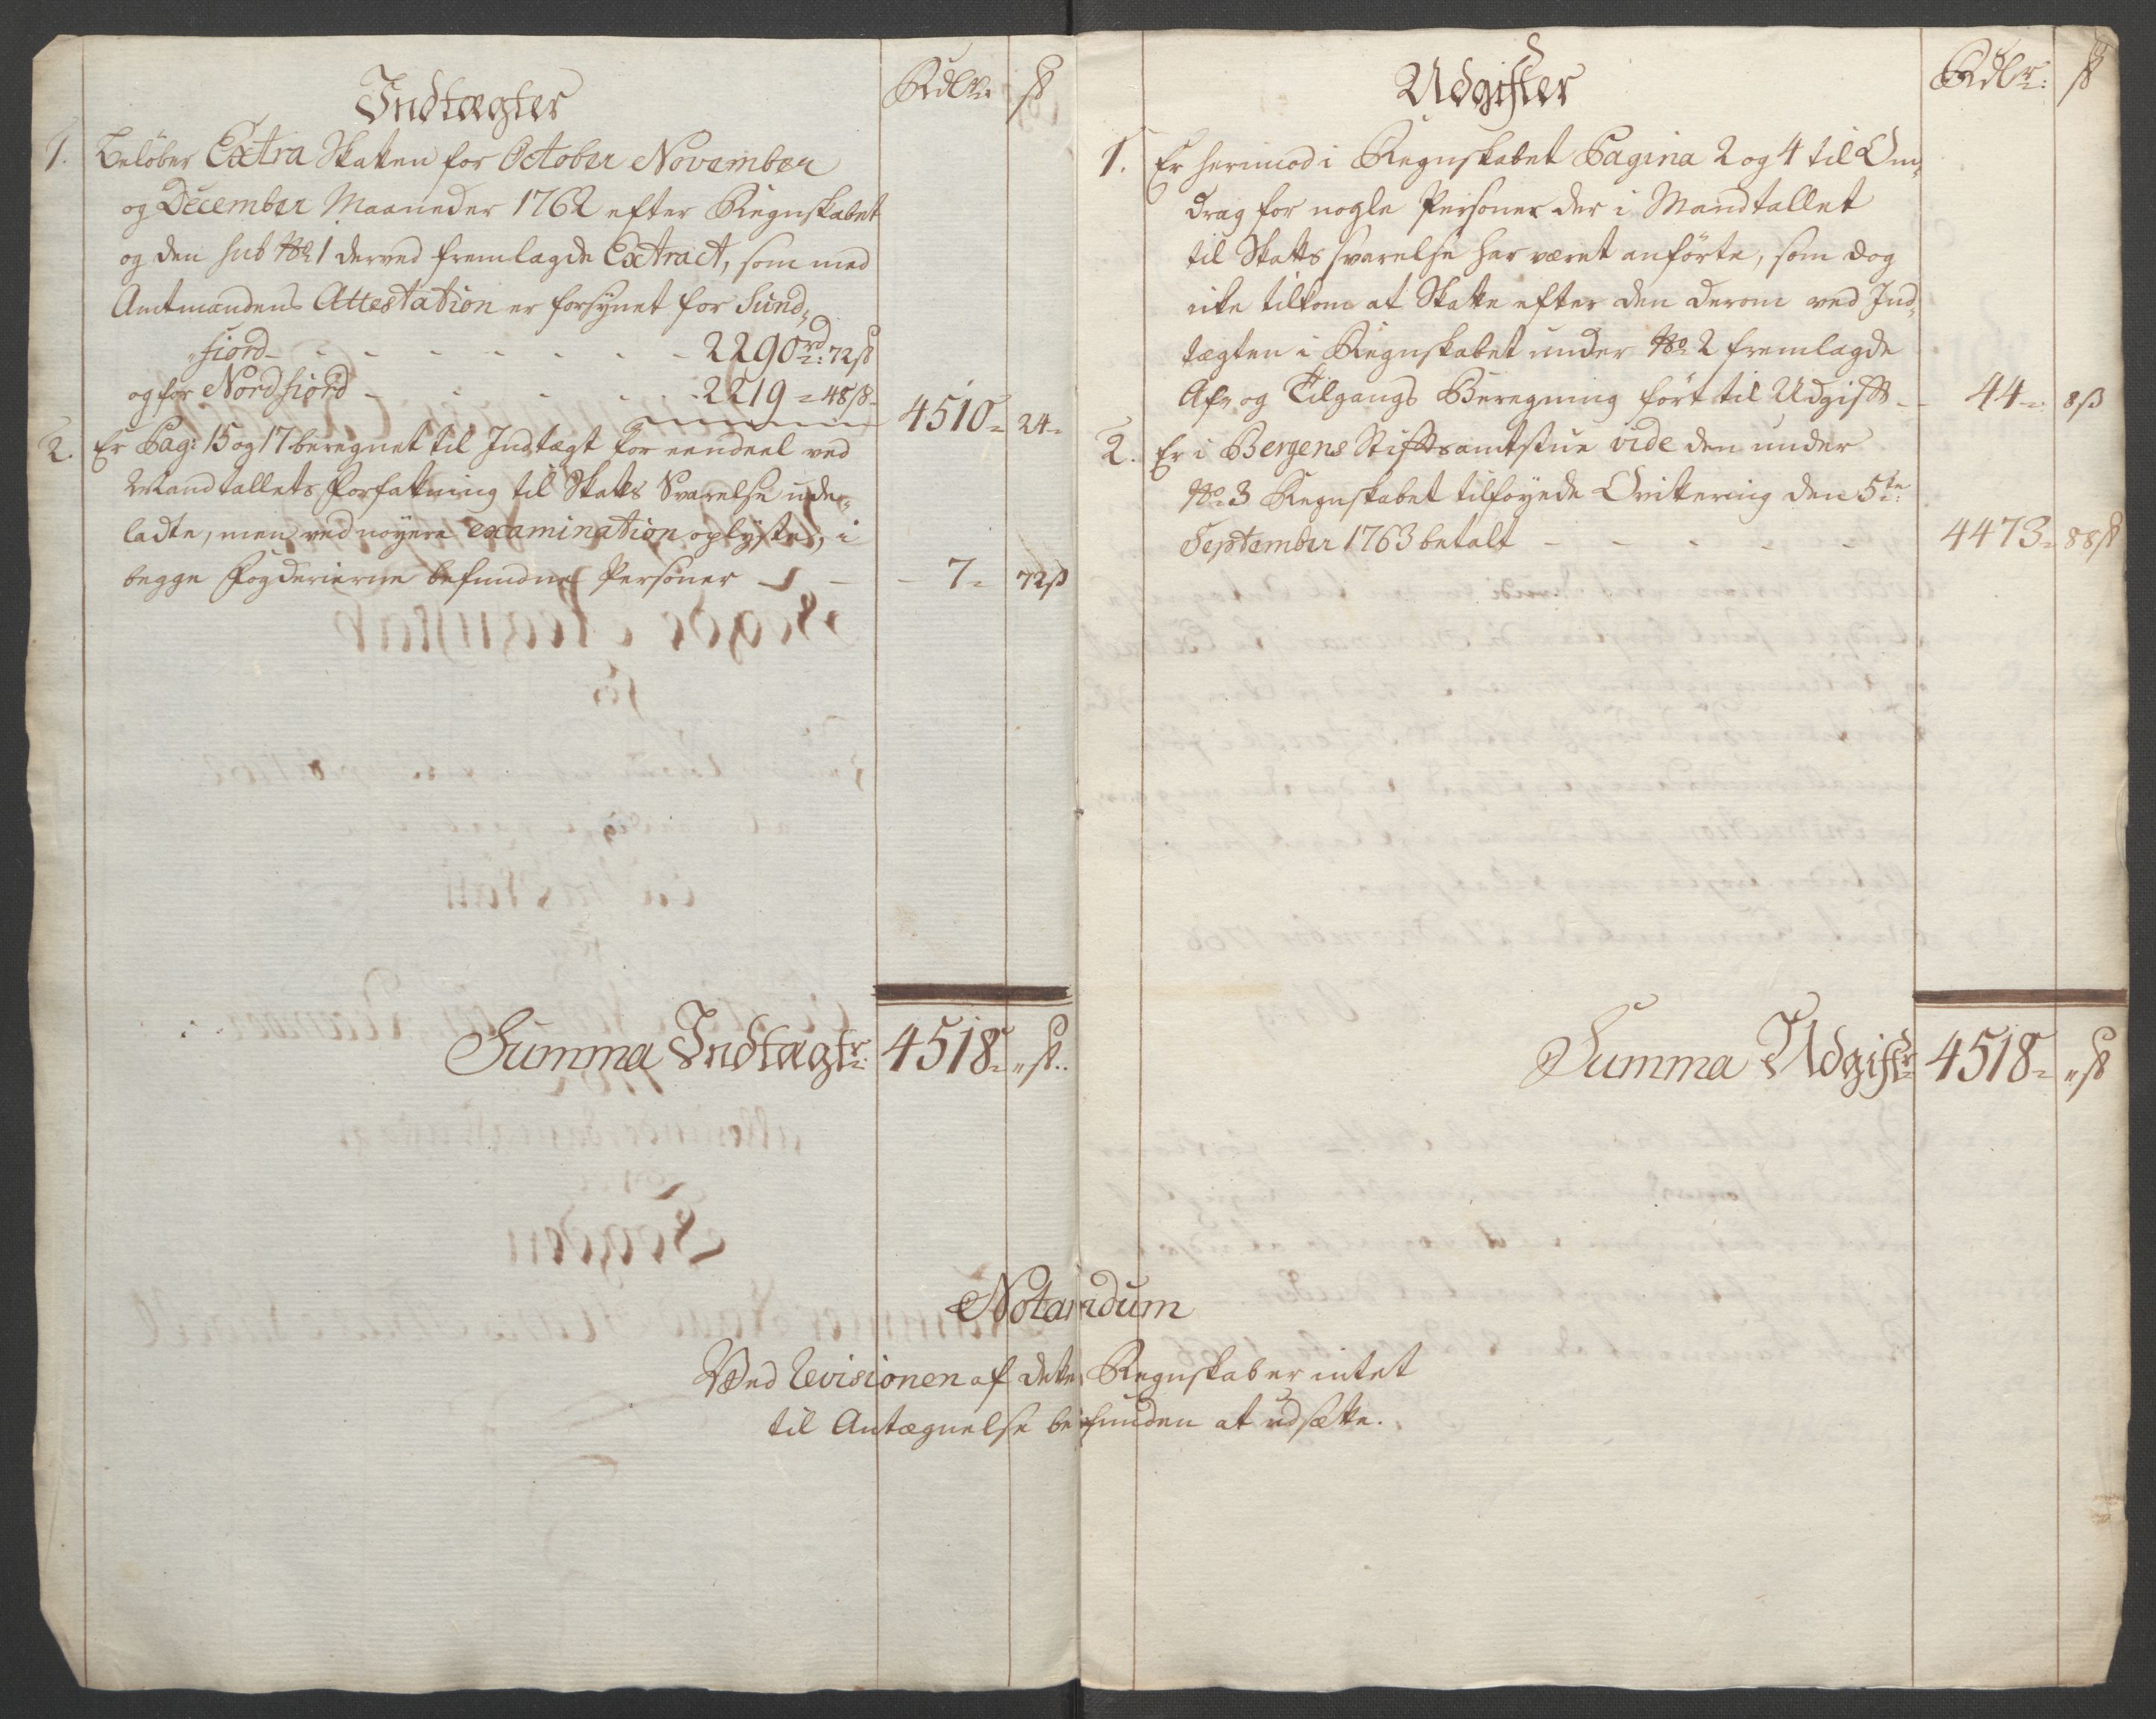 Indtægter
Rdlr: ß
1. Beløber Extra Skatten for October November
og December Maaneder 1762 efter Regnskabet
og den sub No 1 derved fremlagde Extract, som med
Amtmandens Attestation er forsynet for Sund„
„fiord - - - - - - - 2290rd: 72ß
og for Nordfiord - - - - - 2219 = 48ß - 4510 = 24 =
2. Er Pag: 15 og 17 beregnet til Indtægt for eendeel ved
Mandtallets Forfatning til Skatts Svarelse ude„
ladte, men ved nøyere examination oplyste, i
begge Fogderierne befundne Personer - - - 7 = 72ß
Summa Indtægtr: 4518 = „ß.
Udgifter
Rdlr: ß
1. Er herimod i Regnskabet Pagina 2 og 4 til Om„
drag for nogle Personer der i Mandtallet
til Skatts svarelse har været anførte, som dog
icke tilkom at Skatte efter den derom ved Ind„
tægten i Regnskabet under No 2 fremlagde
Af„ og Tilgangs Beregning ført til Udgift - - 44 = 8ß
2. Er i Bergens Stiftsamtstue vide den under
No 3 Regnskabet tilføyede Qvittering den 5te
September 1763 betalt - - - - - 4473 = 88ß
Summa Udgiftr 4518 = „ß
Notandum
Ved Revisionen af dette Regnskab er intet
til Antægnelse befunden at udsætte.